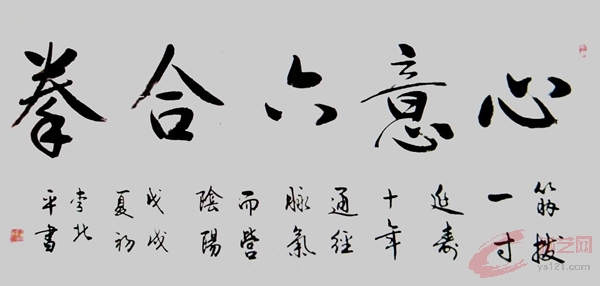 心意六合拳
筋拔
一寸
延壽
十年
通經
脉氣
而營
陰陽
戊戌
夏初
李北
平書
艺网